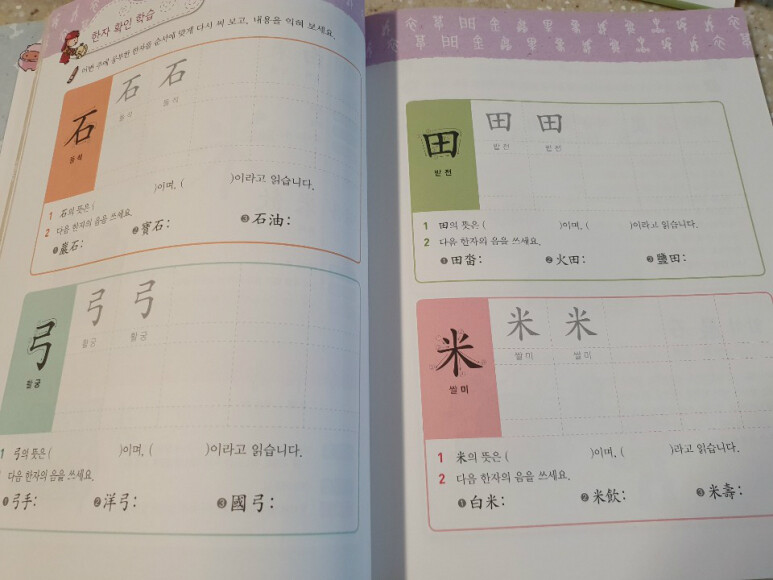 한자 확인 학습
이번 주에 공부한 한자를 순서에 맞게 다시 써 보고, 내용을 익혀 보세요.
石 石 石
돌 석 돌 석 돌 석
1 石의 뜻은 ( )이며, ( )이라고 읽습니다.
2 다음 한자의 음을 쓰세요.
❶巖石: ❷寶石: ❸石油:
弓 弓 弓
활 궁 활 궁 활 궁
1 弓의 뜻은 ( )이며, ( )이라고 읽습니다.
2 다음 한자의 음을 쓰세요.
❶弓手: ❷洋弓: ❸國弓:
田 田 田
밭 전 밭 전 밭 전
1 田의 뜻은 ( )이며, ( )이라고 읽습니다.
2 다음 한자의 음을 쓰세요.
❶田畓: ❷火田: ❸鹽田:
米 米 米
쌀 미 쌀 미 쌀 미
1 米의 뜻은 ( )이며, ( )라고 읽습니다.
2 다음 한자의 음을 쓰세요.
❶白米: ❷米飮: ❸米壽: